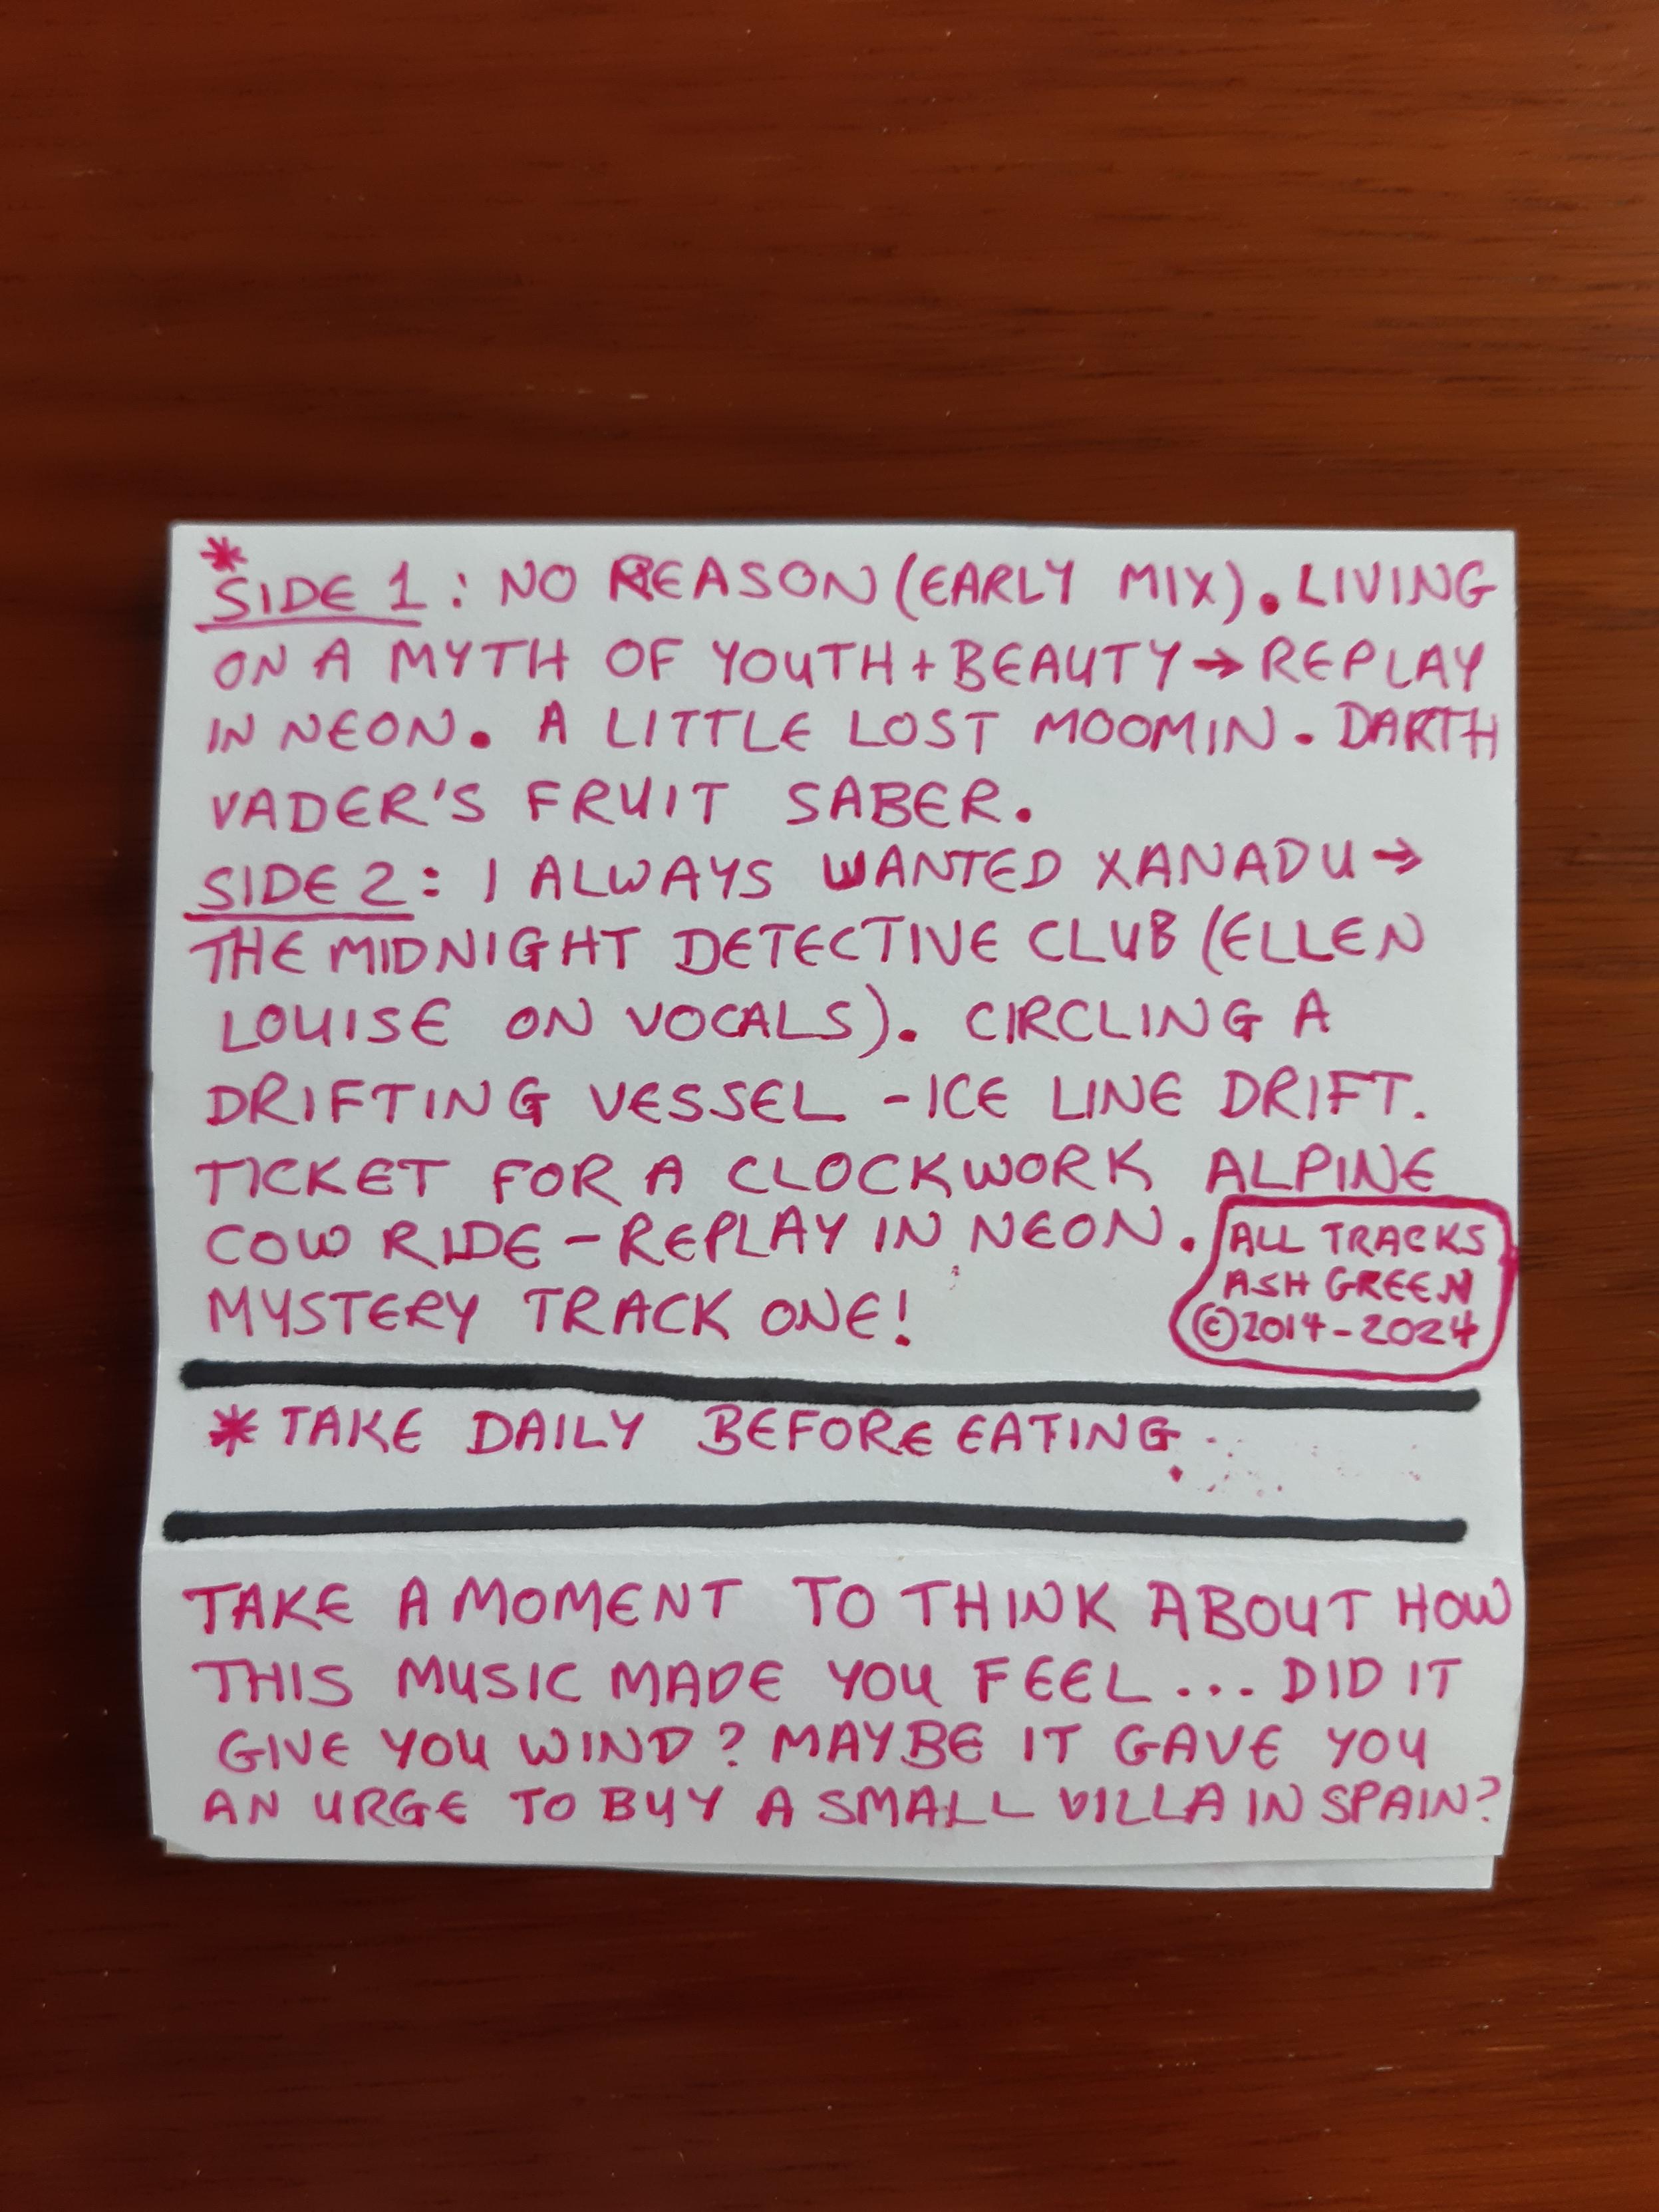 *
SIDE 1: NO REASON (EARLY MIX). LIVING
ON A MYTH OF YOUTH + BEAUTY → REPLAY
IN NEON. A LITTLE LOST MOOMIN. DARTH
VADER'S FRUIT SABER.
SIDE 2: I ALWAYS WANTED XANADU →
THE MIDNIGHT DETECTIVE CLUB (ELLEN
LOUISE ON VOCALS). CIRCLING A
DRIFTING VESSEL - ICE LINE DRIFT.
TICKET FOR A CLOCKWORK ALPINE
COW RIDE - REPLAY IN NEON.
MYSTERY TRACK ONE!
ALL TRACKS
ASH GREEN
© 2014-2024
* TAKE DAILY BEFORE EATING.
TAKE A MOMENT TO THINK ABOUT HOW
THIS MUSIC MADE YOU FEEL... DID IT
GIVE YOU WIND? MAYBE IT GAVE YOU
AN URGE TO BUY A SMALL VILLA IN SPAIN?